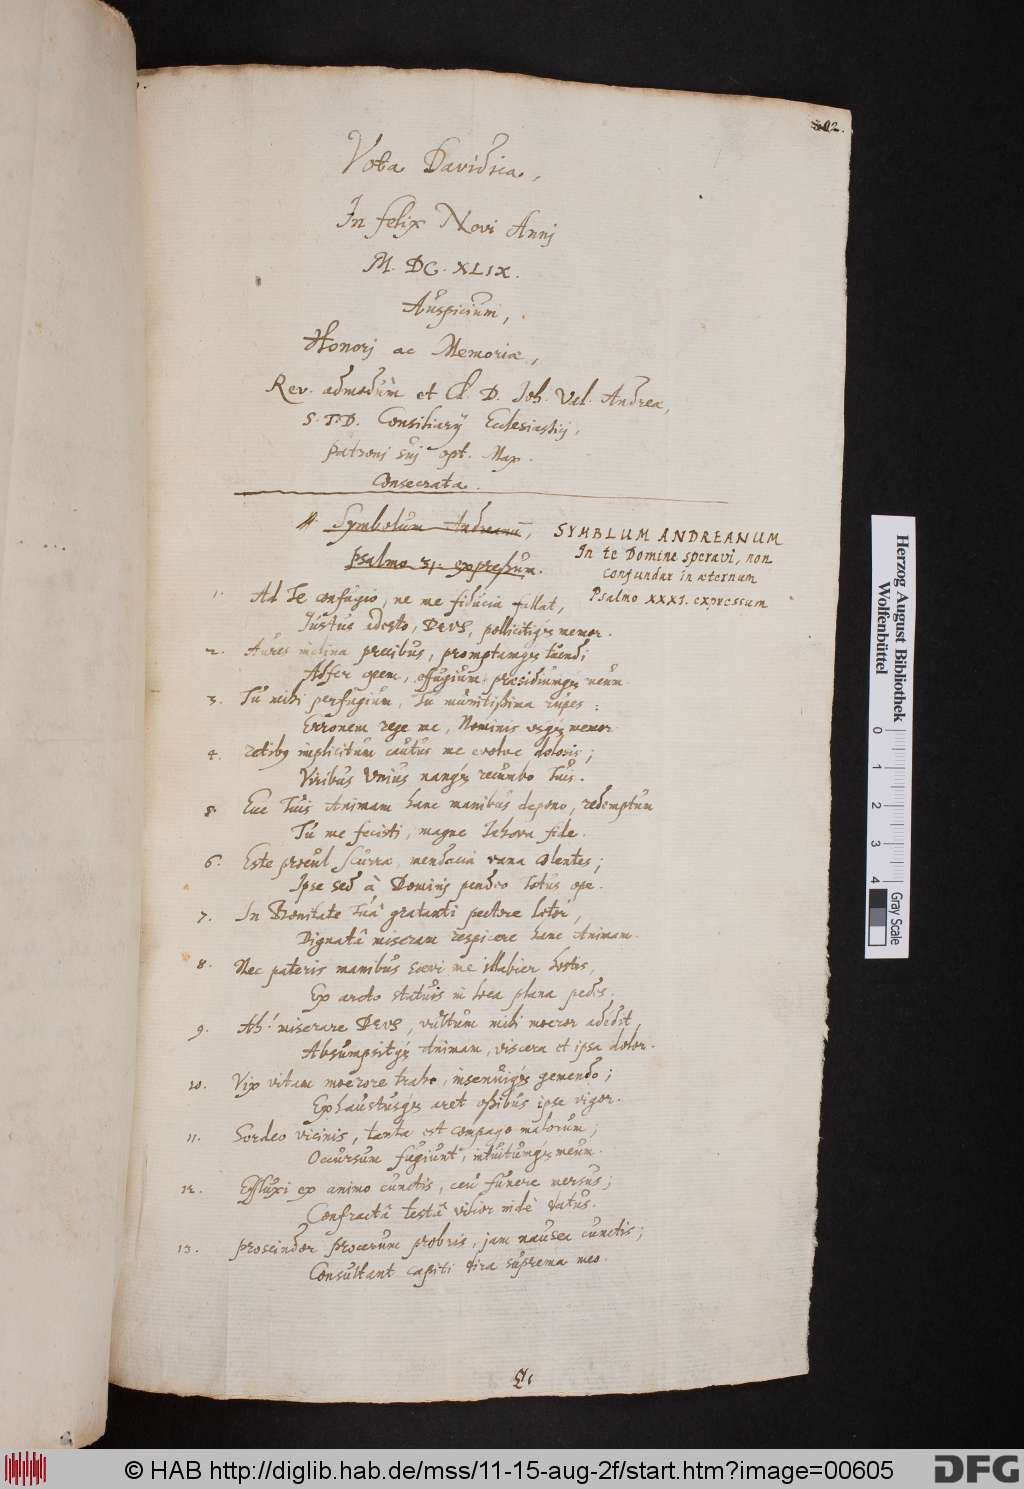 302.
Vota Davidica,
In felix Novi Annj
M. DC. XLIX.
Auspicium,
Honorj ac Memoriæ,
Rev. admodùm et Cl. D. Joh. Val. Andreæ,
S. T. D. Consiliarij Ecclesiastici,
Patronj suj opt. Max.
Consecrata.
Symbolum Andreanū,
Psalmo 31. expressum.
SYMBLUM ANDREANUM
In te Domine speravi, non
confundar in æternum
Psalmo XXXI. expressum
1. Ad Te confugio, ne me fiducia fallat,
Justus adesto, DEUS, pollicitiq́ memor.
2. Aures inclina precibus, promptamq́ tuendi
Adfer opem, effugium præsidiumq́ meum.
3. Tu mihi perfugium, Tu munitissima rupes:
Erronem rege me, Nominis usq́ memor.
4. retibꝰ implicitum cautus me evolve dolosis;
Viribus Unius namq́ recumbo Tuis.
5. Eue Tuis Animam hanc manibus depono, redemptum
Tu me fecisti, magne Jehova fide.
6. Este procul scurræ, mendacia vana colentes;
Ipse sed à Domini pendeo totus ope.
7. In Bonitate Tuâ gratanti pectore lætor,
Dignatâ miseram respicere hanc Animam.
8. Nec pateris manibus sævi me illabier hostis,
Ex arcto statuis in loca plana pedes.
9. Ah! miserare DEUS, vultum mihi moeror adedit
Absumpsitq́ Animam, viscera et ipsa dolor.
10. Vix vitam moerore traho, insenuiq́ gemendo;
Exhaustusq́ aret ossibus ipse vigor.
11. Sordeo vicinis, tanta est compago malorum;
Occursum fugiunt, intuitumq́ meum.
12. Effluxi ex animo cunctis, ceu funere mersus;
Confractâ testâ vilior inde datus.
13. Proscindor procerum probris, jam nausea cunctis;
Consultant capiti dira suprema meo.
Herzog August Bibliothek
Wolfenbüttel
0 1 2 3 4
Gray Scale
© HAB http://diglib.hab.de/mss/11-15-aug-2f/start.htm?image=00605
DFG